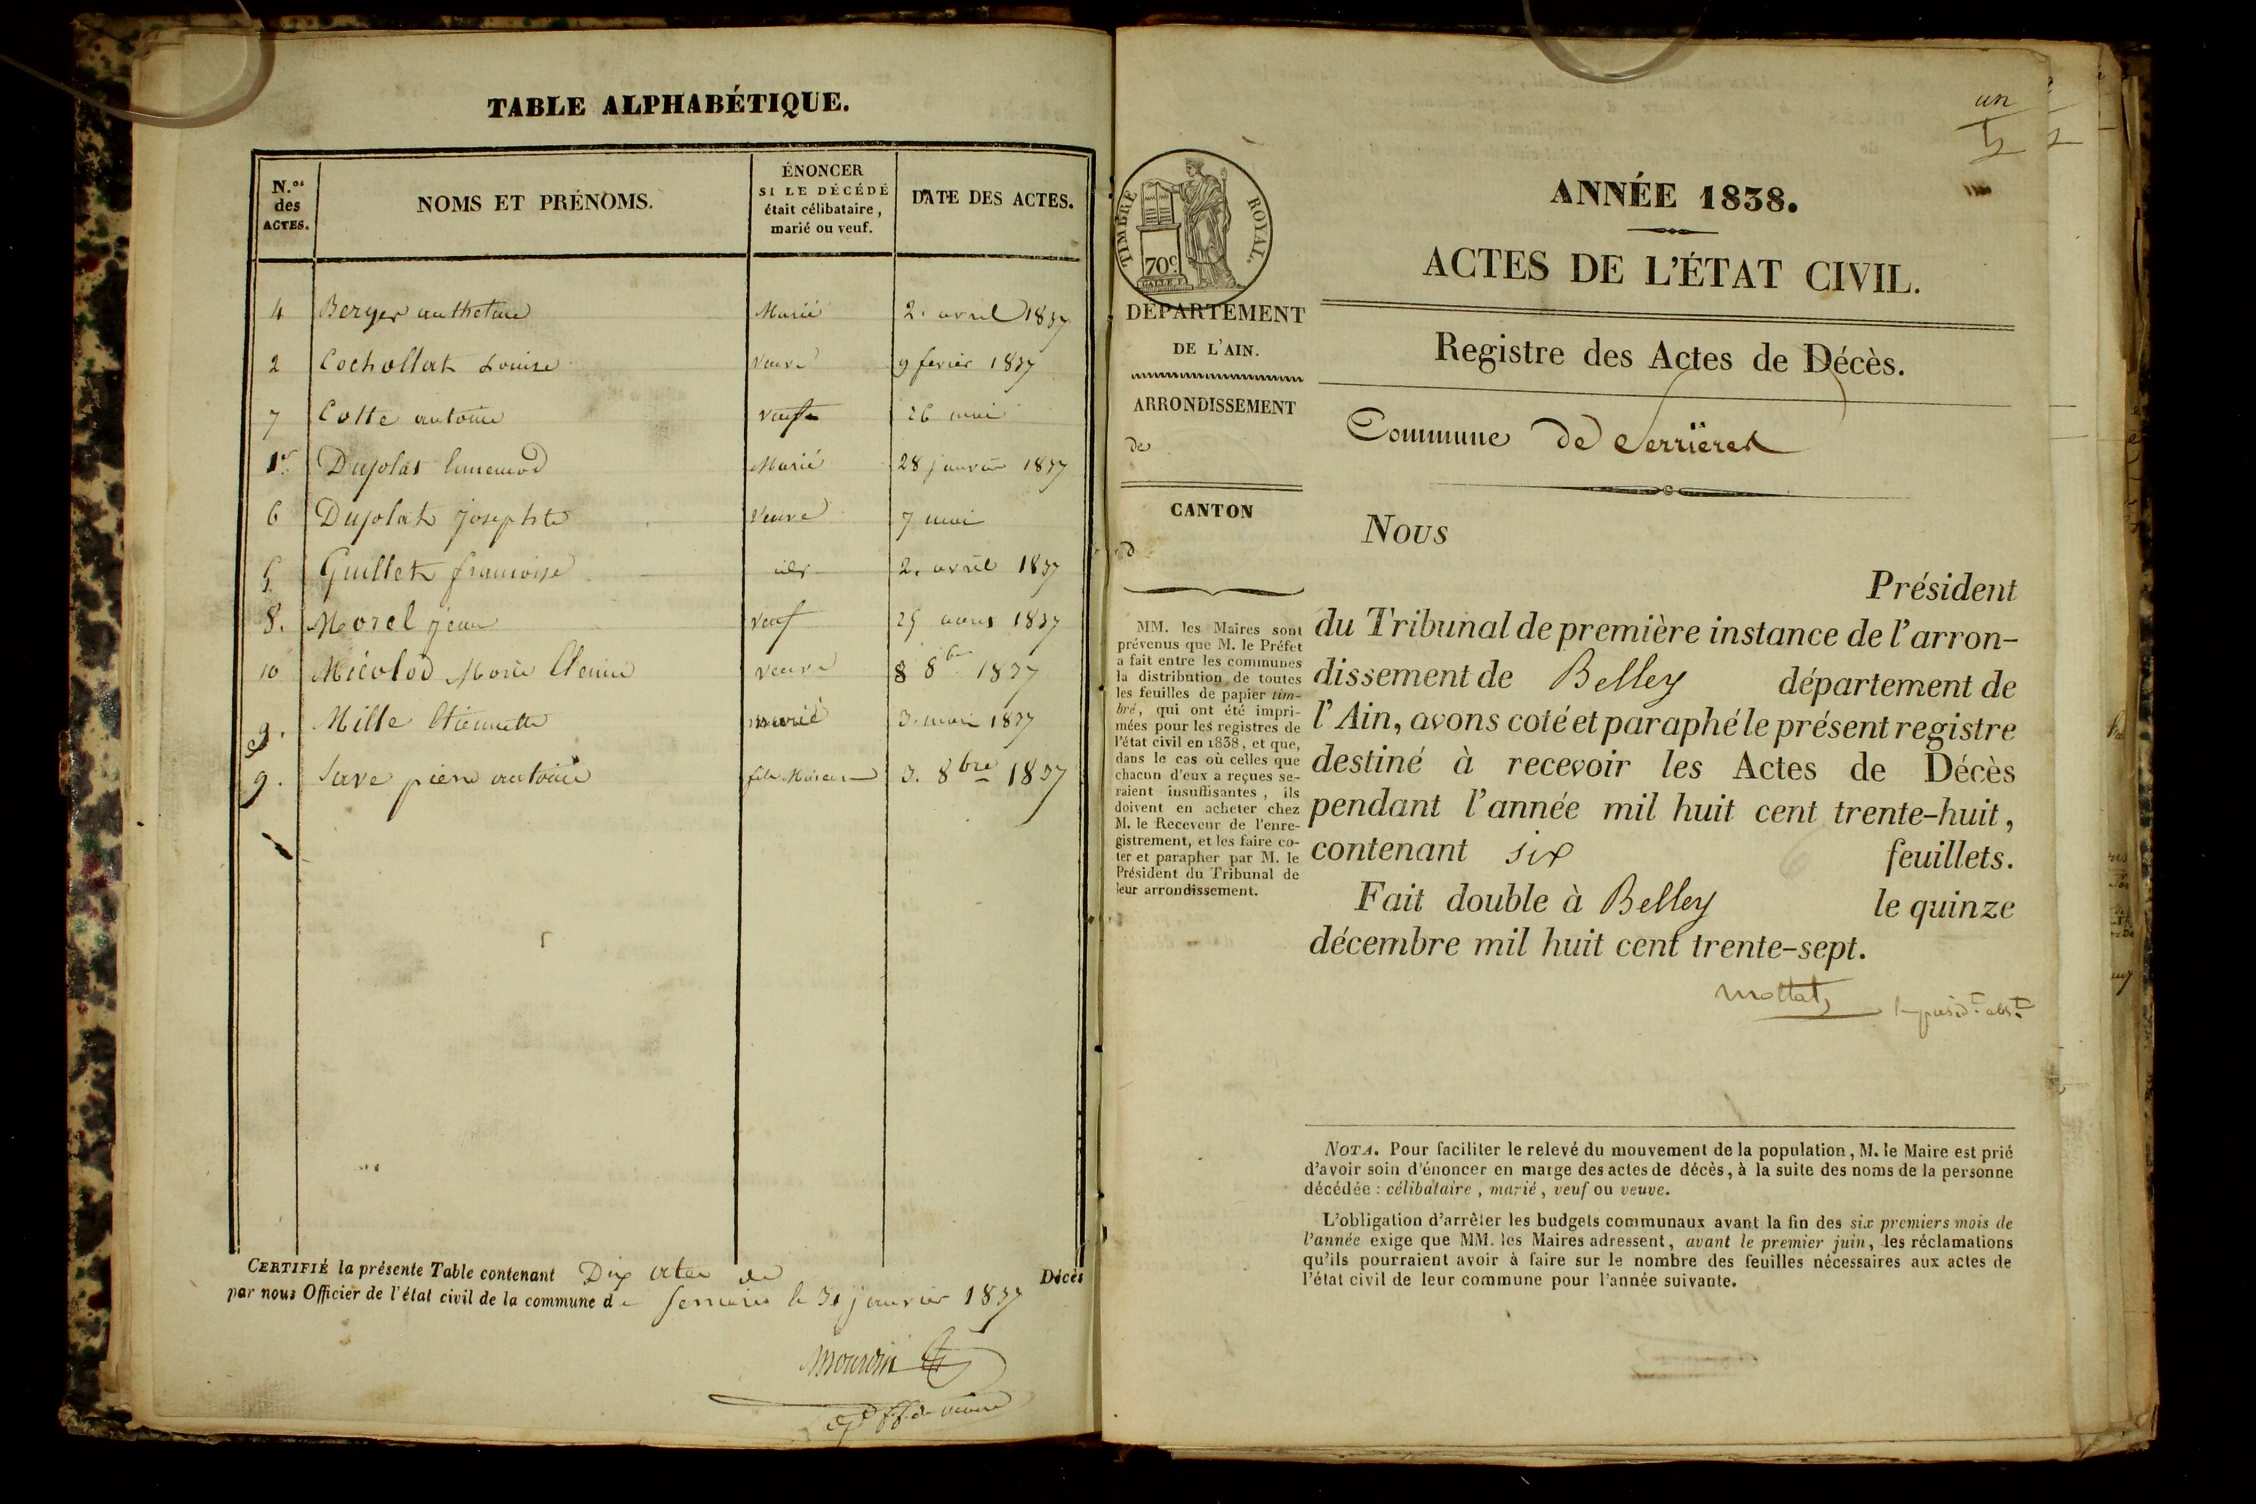 TABLE ALPHABÉTIQUE.
N.os des ACTES. NOMS ET PRÉNOMS. ÉNONCER SI LE DÉCÉDÉ était célibataire, marié ou veuf. DATE DES ACTES.
4 Berger Marié 2. avril 1837
2 Cochollat Louise veuve 9 fevrier 1837
7 Cotte antoine veuf 26 mai
1er Dujolat Marié 28 janvier 1837
6 Dujolat josephte veuve 7 mai
5 Guillet francoise 2. avril 1837
8. Morel jean veuf 1837
10 Micolod Marie veuve 8 8bre 1837
3. Mille Etiennette marié 3. 1837
9. Save pierre antoine 3. 8bre 1837
CERTIFIÉ la présente Table contenant Dix actes de Décès
par nous Officier de l'état civil de la commune de Serrieres le 31 janvier 1837
un
TIMBRE ROYAL.
70c
ANNÉE 1838.
ACTES DE L'ÉTAT CIVIL.
Registre des Actes de Décès.
Commune de Serrières
DÉPARTEMENT
DE L'AIN.
ARRONDISSEMENT
de
CANTON
d
MM. les Maires sont
prévenus que M. le Préfet
a fait entre les communes
la distribution de toutes
les feuilles de papier tim-
bré, qui ont été impri-
mées pour les registres de
l'état civil en 1838, et que,
dans le cas où celles que
chacun d'eux a reçues se-
raient insuffisantes, ils
doivent en acheter chez
M. le Receveur de l'enre-
gistrement, et les faire co-
ter et parapher par M. le
Président du Tribunal de
leur arrondissement.
Nous
Président
du Tribunal de première instance de l'arron-
dissement de Belley département de
l'Ain, avons coté et paraphé le présent registre
destiné à recevoir les Actes de Décès
pendant l'année mil huit cent trente-huit,
contenant six 6 feuillets.
Fait double à Belley le quinze
décembre mil huit cent trente-sept.
NOTA. Pour faciliter le relevé du mouvement de la population, M. le Maire est prié
d'avoir soin d'énoncer en marge des actes de décès, à la suite des noms de la personne
décédée : célibataire, marié, veuf ou veuve.
L'obligation d'arrêter les budgets communaux avant la fin des six premiers mois de
l'année exige que MM. les Maires adressent, avant le premier juin, les réclamations
qu'ils pourraient avoir à faire sur le nombre des feuilles nécessaires aux actes de
l'état civil de leur commune pour l'année suivante.